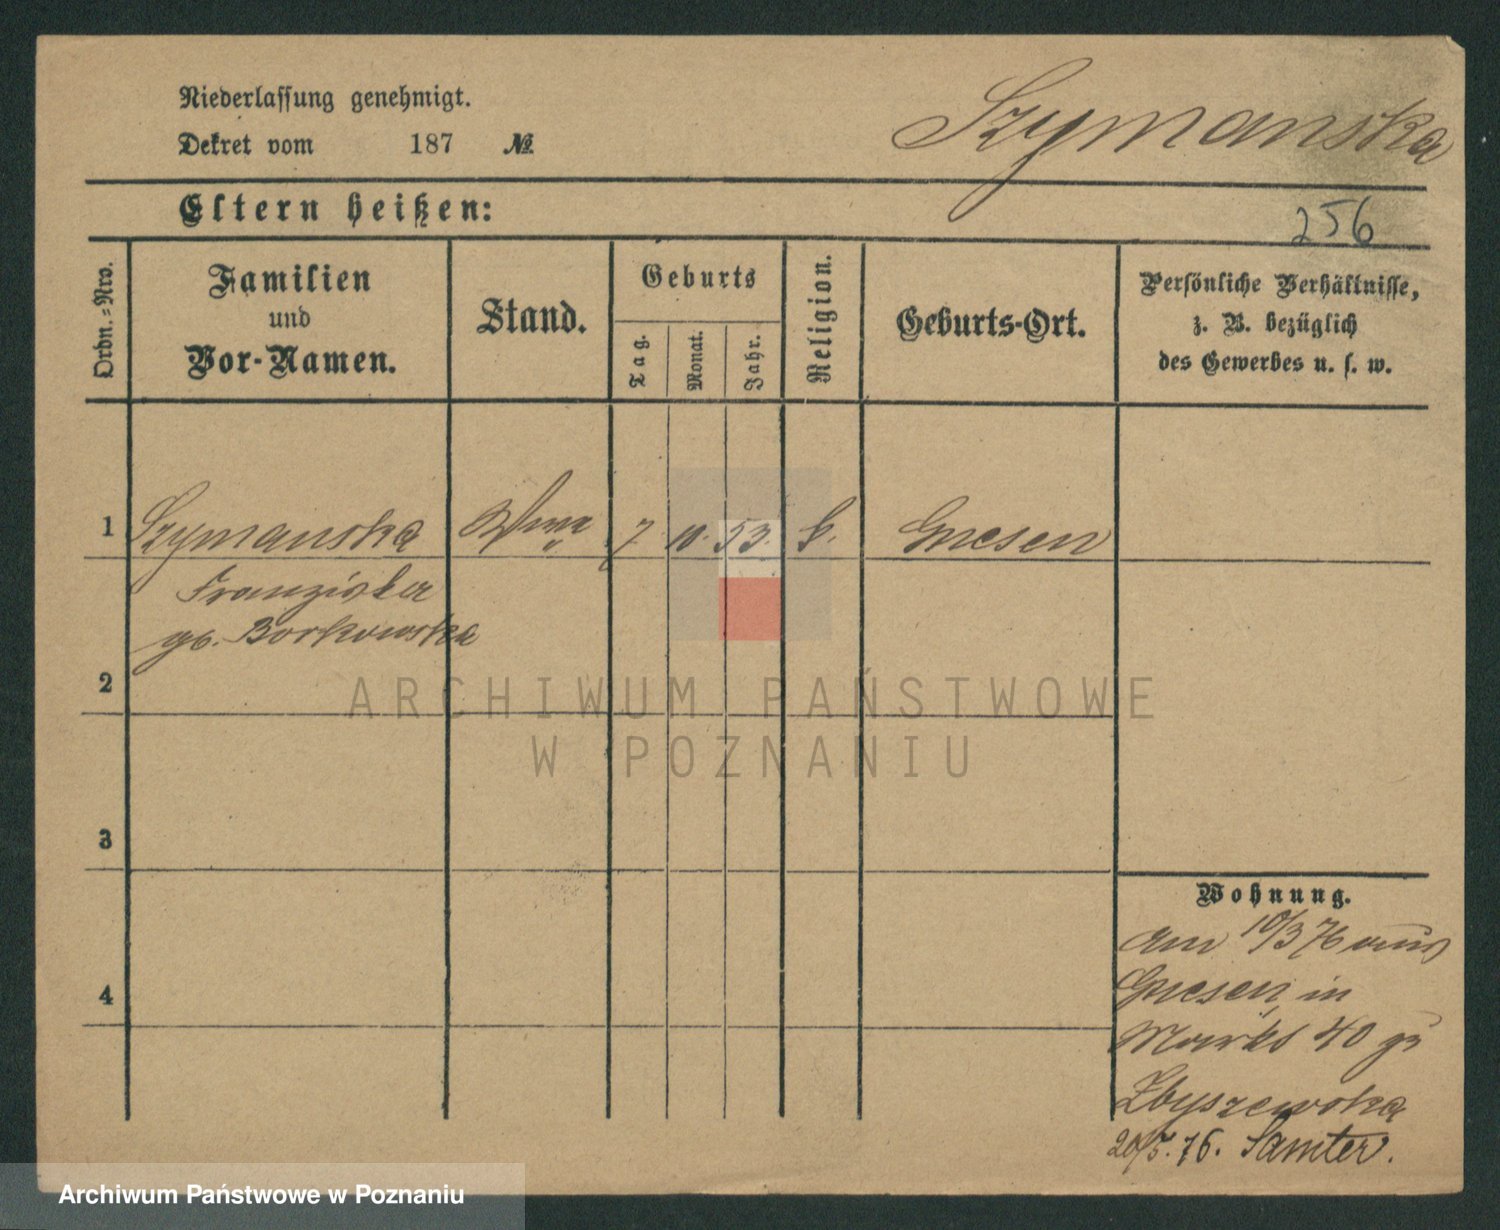 Niederlassung genehmigt.
Dekret vom 187 №
Szymanska
Eltern heißen:
256
Ordn.-Nro.
Familien
und
Vor-Namen.
Stand.
Geburts
Tag.
Monat.
Jahr.
Religion.
Geburts-Ort.
Persönliche Verhältnisse,
z. B. bezüglich
des Gewerbes u. s. w.
1 Szymanska Wwe 7 10. 53. k. Gnesen
Franziska
gb. Borkowska
2
3
4
Wohnung.
Am 10/3 76 aus
Gnesen, in
Markt 40 zu
Zbyszewska
20/5. 76. Samter.
ARCHIWUM PAŃSTWOWE
W POZNANIU
Archiwum Państwowe w Poznaniu